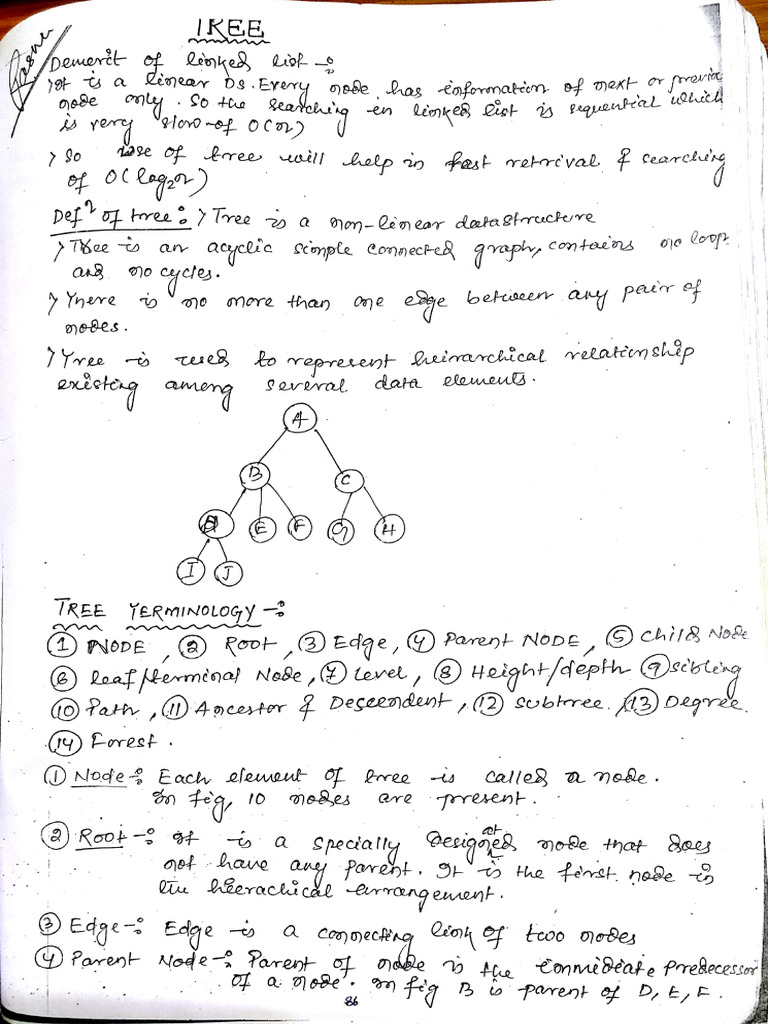 TREE
Demerit of linked list -:
> It is a linear Ds. Every node has information of next or previou
node only. So the searching in linked list is sequential which
is very slow of O(n)
> So use of tree will help in fast retrival & searching
of O(log₂n)
Defⁿ of tree: > Tree is a non-linear datastructure
> Tree is an acyclic simple connected graph, contains no loop
and no cycles.
> There is no more than one edge between any pair of
nodes.
> Tree is used to represent heirarchical relationship
existing among several data elements.
A
B C
E F G H
I J
TREE TERMINOLOGY -:
① NODE, ② Root, ③ Edge, ④ Parent NODE, ⑤ Child Node
⑥ leaf/terminal Node, ⑦ Level, ⑧ Height/depth ⑨ sibling
⑩ Path, ⑪ Ancestor & Descendent, ⑫ subtree, ⑬ Degree
⑭ Forest.
① Node -: Each element of tree is called a node.
In fig, 10 nodes are present.
② Root -: It is a specially Designated node that does
not have any parent. It is the first node in
the hierachical arrangement.
③ Edge -: Edge is a connecting link of two nodes
④ Parent Node -: Parent of node is the immidiate predecessor
of a node. In fig B is parent of D, E, F.
86